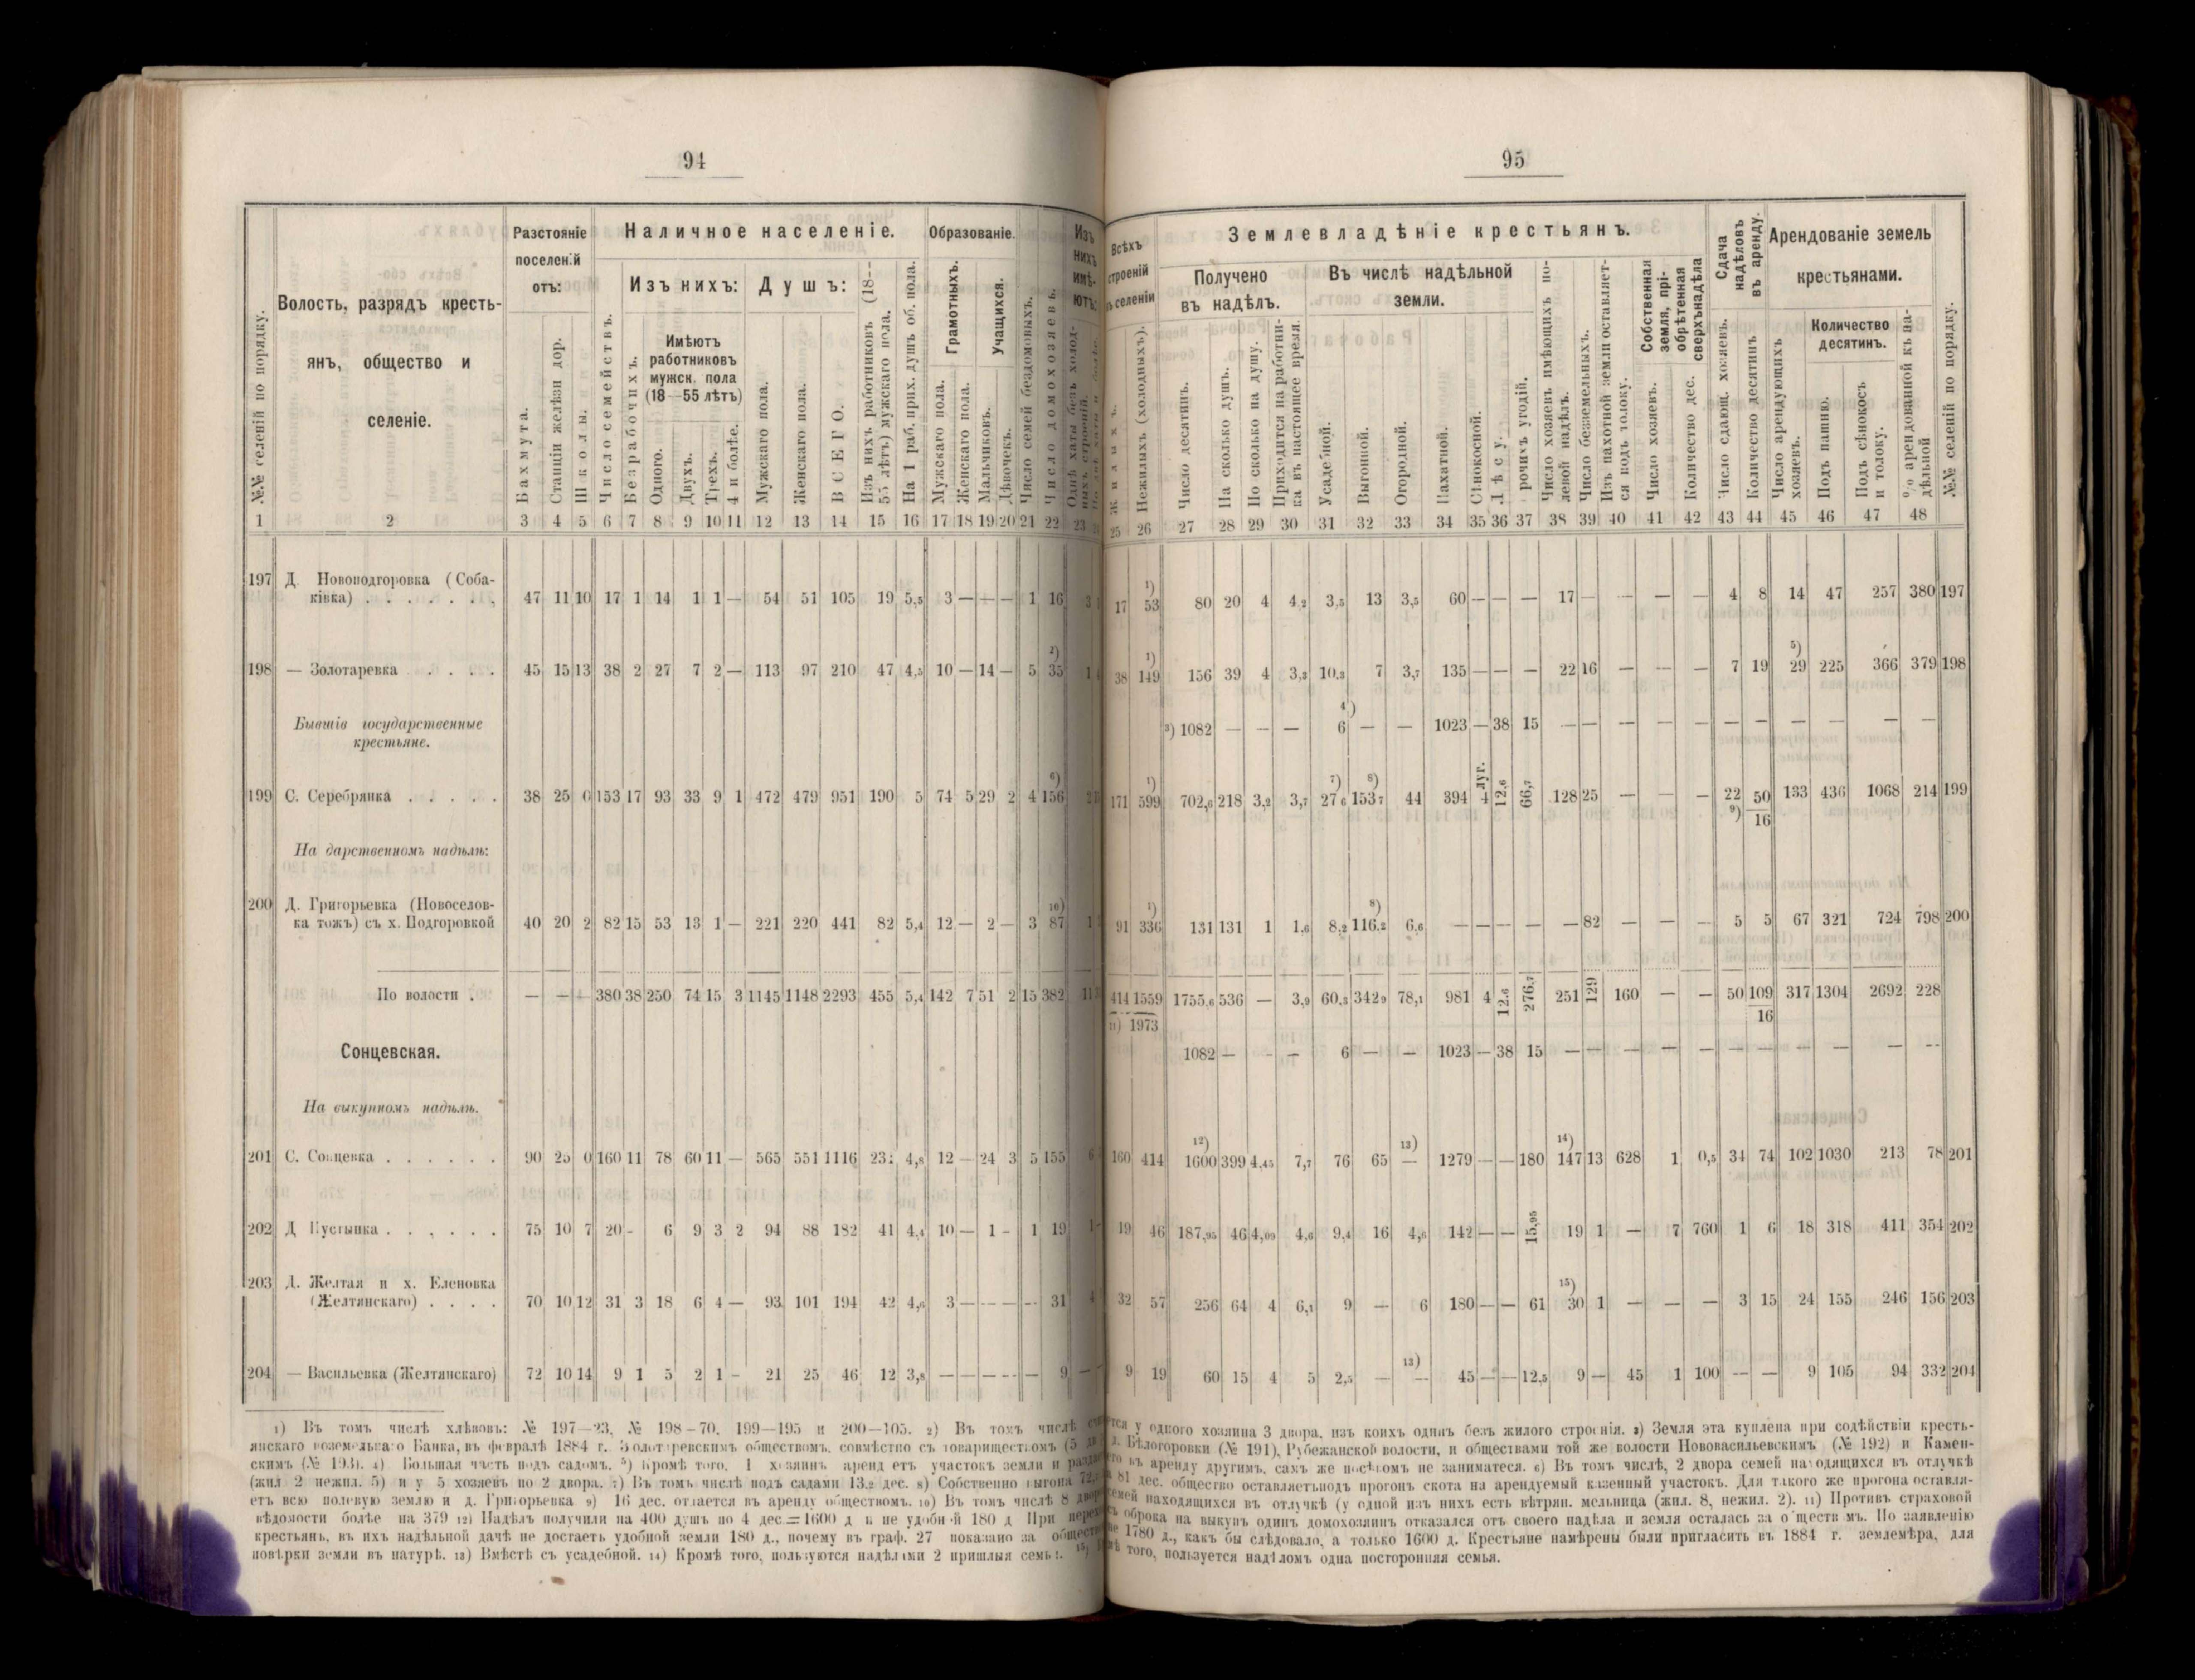 94
Разстояніе
поселеній
отъ:
Наличное населеніе.
Образованіе.
Изъ
нихъ
имѣ-
ютъ:
Изъ нихъ:
Душъ:
Имѣютъ
работниковъ
мужск. пола
(18—55 лѣтъ)
№№ селеній по порядку.
Волость, разрядъ кресть-
янъ, общество и
селеніе.
Бахмута.
Станціи желѣзн дор.
Школы.
Число семействъ.
Безрабочихъ.
Одного.
Двухъ.
Трехъ.
4 и болѣе.
Мужскаго пола.
Женскаго пола.
ВСЕГО.
Изъ нихъ работниковъ (18—
55 лѣтъ) мужскаго пола.
На 1 раб. прих. душъ об. пола.
Грамотныхъ.
Учащихся.
Мужскаго пола.
Женскаго пола.
Мальчиковъ.
Дѣвочекъ.
Число семей бездомовыхъ.
Число домохозяевъ.
1 2 3 4 5 6 7 8 9 10 11 12 13 14 15 16 17 18 19 20 21 22 23
197 Д. Новоподгоровка (Соба-
ківка) . . . . . . . 47 11 10 17 1 14 1 1 — 54 51 105 19 5,5 3 — — — 1 16
198 — Золотаревка . . . . 45 15 13 38 2 27 7 2 — 113 97 210 47 4,5 10 — 14 — 5 2) 35
Бывшіе государственные
крестьяне.
199 С. Серебрянка . . . . . 38 25 0 153 17 93 33 9 1 472 479 951 190 5 74 5 29 2 4 6) 156
На дарственномъ надѣлѣ:
200 Д. Григорьевка (Новоселов-
ка тожъ) съ х. Подгоровкой 40 20 2 82 15 53 13 1 — 221 220 441 82 5,4 12 — 2 — 3 10) 87
По волости . — — — 380 38 250 74 15 3 1145 1148 2293 455 5,4 142 7 51 2 15 382
Сонцевская.
На выкупномъ надѣлѣ.
201 С. Сонцевка . . . . . . 90 25 0 160 11 78 60 11 — 565 551 1116 4,8 12 — 24 3 5 155
202 Д Пустынка . . . . . . 75 10 7 20 - 6 9 3 2 94 88 182 41 4,4 10 — 1 - 1 19
203 Д. Желтая и х. Еленовка
(Желтянскаго) . . . . 70 10 12 31 3 18 6 4 — 93 101 194 42 4,6 3 — — — — 31
204 — Васильевка (Желтянскаго) 72 10 14 9 1 5 2 1 - 21 25 46 12 3,8 — — — — — 9
1) Въ томъ числѣ хлѣвовъ: № 197—23, № 198—70. 199—195 и 200—105. 2) Въ томъ числѣ
янскаго поземельнаго Банка, въ февралѣ 1884 г. Золотаревскимъ обществомъ, совмѣстно съ товариществомъ (5
скимъ (№ 193). 4) Большая часть подъ садомъ. 5) Кромѣ того, 1 хозяинъ арендетъ участокъ земли и
(жил 2 нежил. 5) и у 5 хозяевъ по 2 двора. 7) Въ томъ числѣ подъ садами 13,2 дес. 8) Собственно выгона
етъ всю полевую землю и д. Григорьевка 9) 16 дес. отдается въ аренду обществомъ. 10) Въ томъ числѣ 8
вѣдомости болѣе на 379 12) Надѣлъ получили на 400 душъ по 4 дес.=1600 д и не удобной 180 д При
крестьянъ, въ ихъ надѣльной дачѣ не достаетъ удобной земли 180 д., почему въ граф. 27 показано за
повѣрки земли въ натурѣ. 13) Вмѣстѣ съ усадебной. 14) Кромѣ того, пользуются надѣлами 2 пришлыя семьи. 15)
95
Всѣхъ
строеній
въ селеніи
Землевладѣніе крестьянъ.
Сдача
надѣловъ
въ аренду.
Арендованіе земель
крестьянами.
Получено
въ надѣлъ.
Въ числѣ надѣльной
земли.
Собственная
земля, прі-
обрѣтенная
сверхъ надѣла
Количество
десятинъ.
Жилыхъ.
Нежилыхъ (холодныхъ).
Число десятинъ.
На сколько душъ.
По сколько на душу.
Приходится на работни-
ка въ настоящее время.
Усадебной.
Выгонной.
Огородной.
Пахатной.
Сѣнокосной.
Лѣсу.
Прочихъ угодій.
Число хозяевъ имѣющихъ по-
левой надѣлъ.
Число безземельныхъ.
Изъ пахотной земли оставляет-
ся подъ толоку.
Число хозяевъ.
Количество дес.
Число сдающ. хозяевъ.
Количество десятинъ
Число арендующихъ
хозяевъ.
Подъ пашню.
Подъ сѣнокосъ
и толоку.
% арендованной къ на-
дѣльной
№№ селеній по порядку.
25 26 27 28 29 30 31 32 33 34 35 36 37 38 39 40 41 42 43 44 45 46 47 48
17 1) 53 80 20 4 4,2 3,5 13 3,5 60 — — — 17 — — — — 4 8 14 47 257 380 197
38 1) 149 156 39 4 3,3 10,3 7 3,7 135 — — — 22 16 — — — 7 19 5) 29 225 366 379 198
3) 1082 — — — 4) 6 — — 1023 — 38 15 — — — — — — — — — — —
171 1) 599 702,6 218 3,2 3,7 7) 27 6 8) 153 7 44 394 4 луг. 12,6 66,7 128 25 — — — 22 50 133 436 1068 214 199
9) 16
91 1) 336 131 131 1 1,6 8,2 8) 116,2 6,6 — — — — — 82 — — — 5 5 67 321 724 798 200
414 1559 1755,6 536 — 3,9 60,3 342 9 78,1 981 4 12,6 276,7 251 129 160 — — 50 109 317 1304 2692 228
11) 1973 16
1082 — - — 6 — — 1023 — 38 15 — — — — — — — — — — —
160 414 12) 1600 399 4,45 7,7 76 65 13) — 1279 — — 180 14) 147 13 628 1 0,5 34 74 102 1030 213 78 201
19 46 187,95 46 4,09 4,6 9,4 16 4,6 142 — — 15,95 19 1 — 7 760 1 6 18 318 411 354 202
32 57 256 64 4 6,1 9 — 6 180 — — 61 15) 30 1 — — — 3 15 24 155 246 156 203
9 19 60 15 4 5 2,5 — 13) — 45 — — 12,5 9 — 45 1 100 — — 9 105 94 332 204
у одного хозяина 3 двора, изъ коихъ одинъ безъ жилого строенія. 3) Земля эта куплена при содѣйствіи кресть-
д. Бѣлогоровки (№ 191), Рубежанской волости, и обществами той же волости Нововасильевскимъ (№ 192) и Камен-
въ аренду другимъ, самъ же посѣвомъ не заниматеся. 6) Въ томъ числѣ, 2 двора семей находящихся въ отлучкѣ
81 дес. общество оставляетъ подъ прогонъ скота на арендуемый казенный участокъ. Для такого же прогона оставля-
семей находящихся въ отлучкѣ (у одной изъ нихъ есть вѣтрян. мельница (жил. 8, нежил. 2). 11) Противъ страховой
съ оброка на выкупъ одинъ домохозяинъ отказался отъ своего надѣла и земля осталась за обществомъ. По заявленію
1780 д., какъ бы слѣдовало, а только 1600 д. Крестьяне намѣрены были пригласить въ 1884 г. землемѣра, для
того, пользуется надѣломъ одна посторонняя семья.